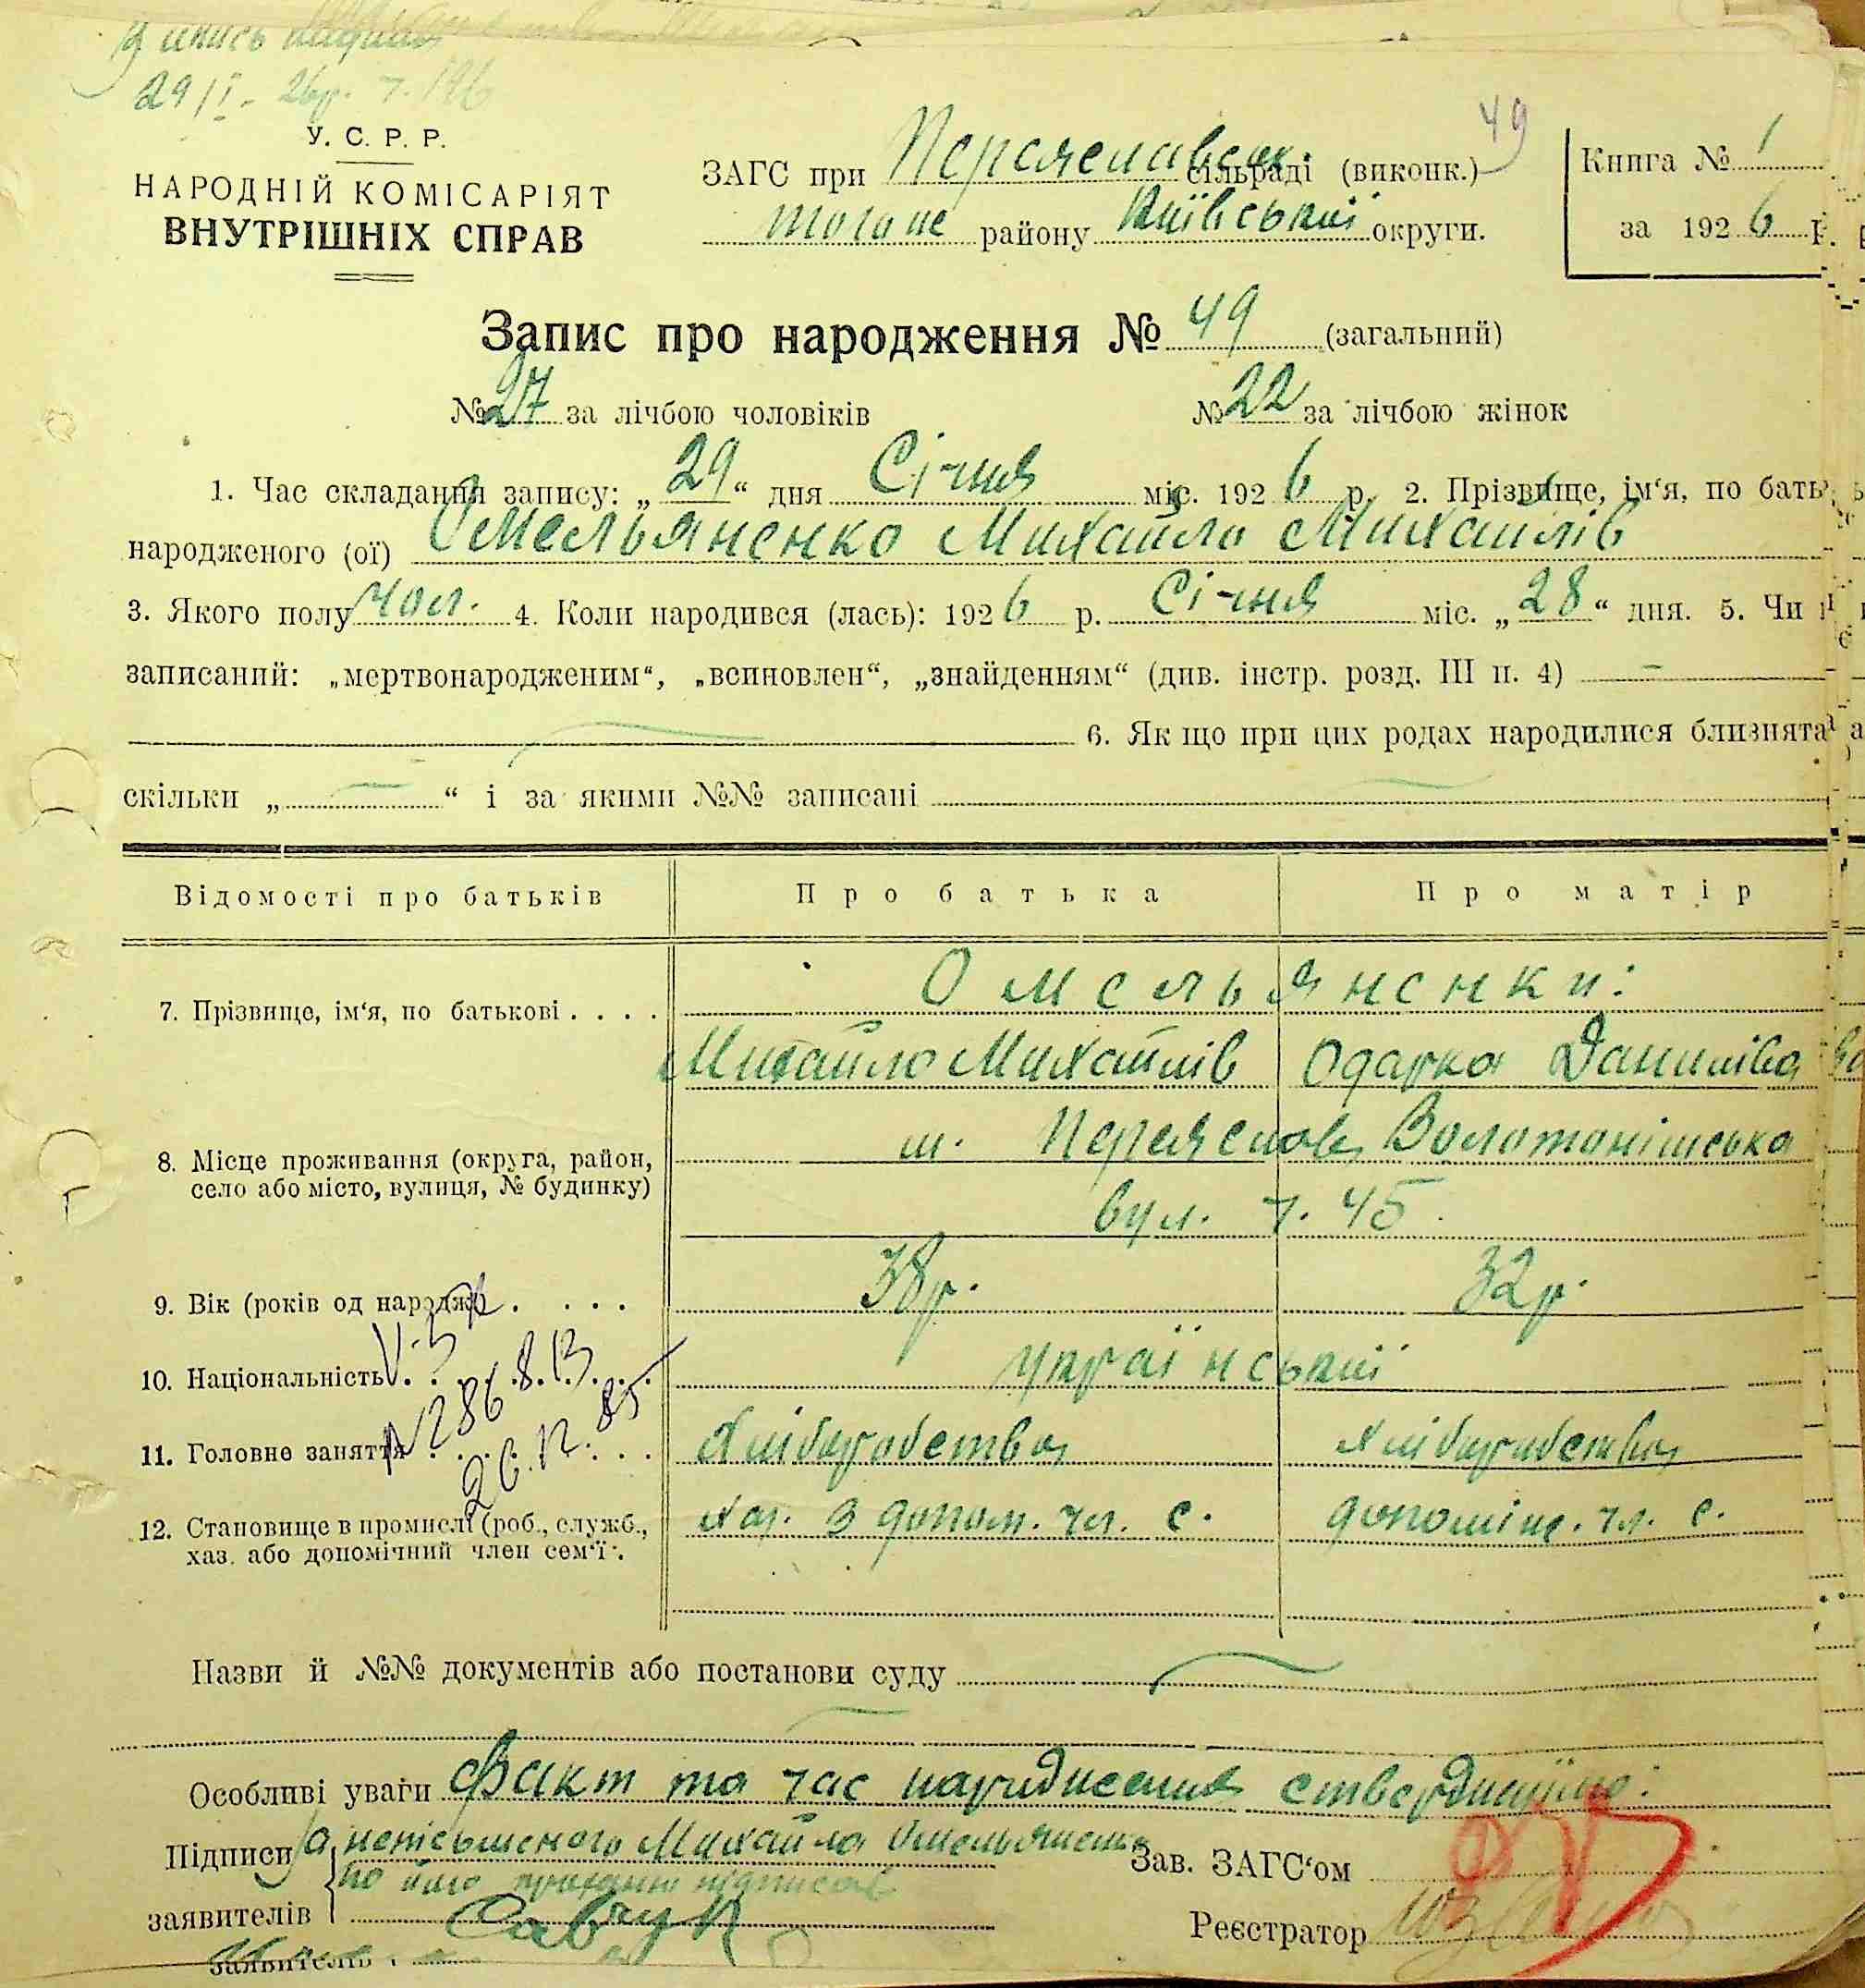 29/I - 26р. ч. 196
У. С. Р. Р.
НАРОДНІЙ КОМІСАРІЯТ
ВНУТРІШНІХ СПРАВ
49
ЗАГС при Переяславськ. сільраді (виконк.)
того ж району Київської округи.
Книга № 1
за 1926 р.
Запис про народження № 49 (загальний)
№ 27 за лічбою чоловіків № 22 за лічбою жінок
1. Час складання запису: „29“ дня Січня міс. 1926 р. 2. Прізвище, ім‘я, по бать
народженого (ої) Омельяненко Михайло Михайлів
3. Якого полу чол. 4. Коли народився (лась): 1926 р. Січня міс. „28“ дня. 5. Чи
записаний: „мертвонародженим“, „всиновлен“, „знайденням“ (див. інстр. розд. III п. 4) —
6. Як що при цих родах народилися близнята
скільки „—“ і за якими №№ записані
Відомості про батьків Про батька Про матір
7. Прізвище, ім‘я, по батькові . . . . Омельяненки:
Михайло Михайлів Одарка Данилівна
8. Місце проживання (округа, район, м. Переяслов, Золотонішська
село або місто, вулиця, № будинку) вул. ч. 45.
9. Вік (років од народж.) . . . . 38р. 32р.
10. Національність . . . . Української
11. Головне заняття . . . . Хліборобство Хліборобство
12. Становище в промислі (роб., служб., хаз. з допом. чл. с. допоміж. чл. с.
хаз. або допомічний член сем‘ї.
26.12.85
Назви й №№ документів або постанови суду
Особливі уваги Факт та час народження стверджую:
Підписи За неписьменого Михайла Омельяненка Зав. ЗАГС‘ом
по його проханню підписав
заявителів Савчук Реєстратор
заявителів